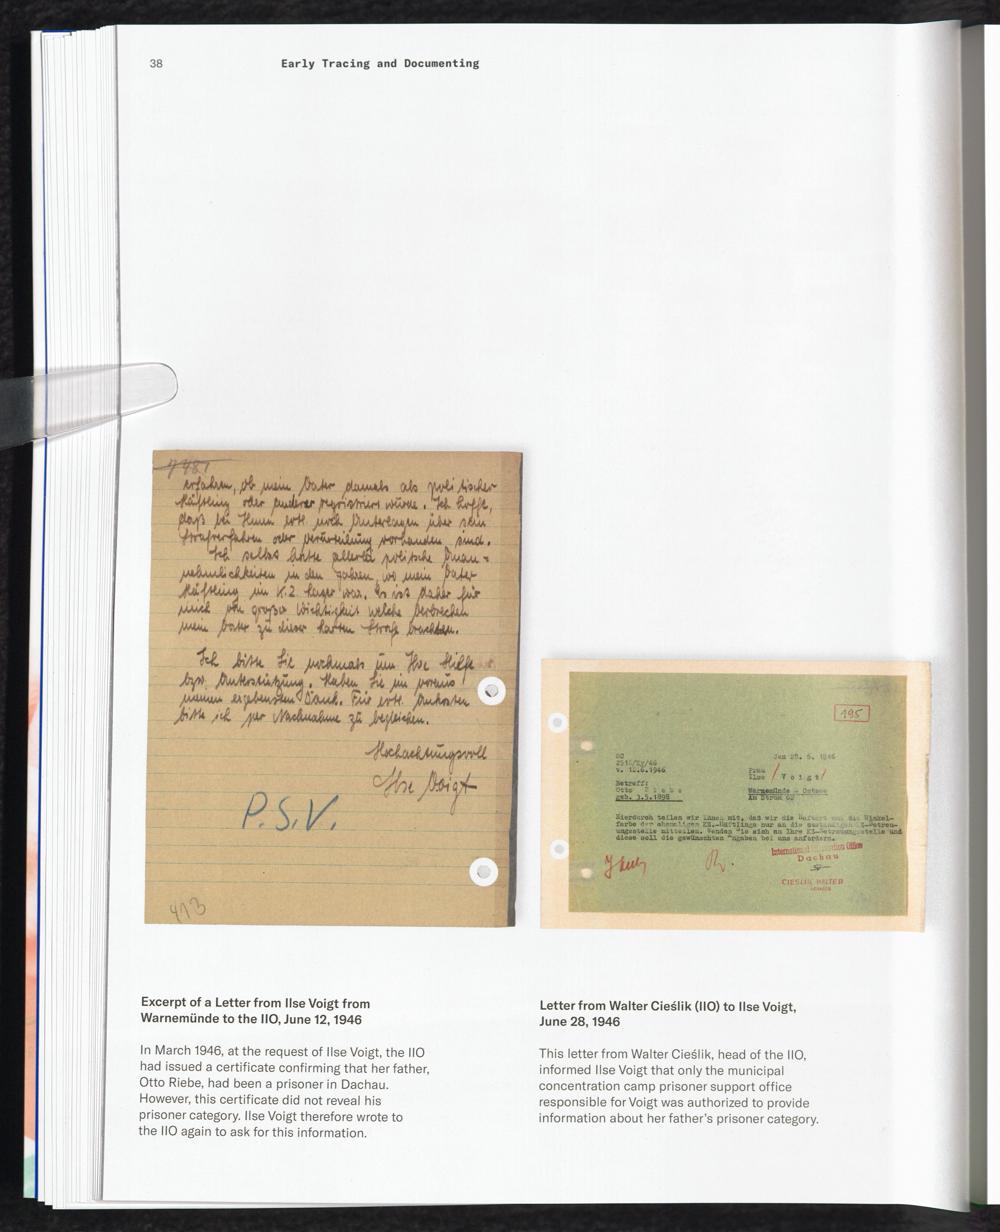 38
Early Tracing and Documenting
7481
erfahren, ob mein Vater damals als politischer
Häftling oder anderer registriert würde. Ich hoffe,
daß bei Ihnen evtl. noch Unterlagen über sein
Strafverfahren oder Verurteilung vorhanden sind.
Ich selbst hatte allerlei politische Unan=
nehmlichkeiten in den Jahren, wo mein Vater
Häftling im K.Z. Lager war. Es ist daher für
mich von großer Wichtigkeit welche Verbrechen
mein Vater zu dieser harten Strafe brachten.
Ich bitte Sie nochmals um Ihre Hilfe
bzw. Unterstützung. Haben Sie im voraus
meinen ergebensten Dank. Für evtl. Unkosten
bitte ich per Nachnahme zu begleichen.
Hochachtungsvoll
Ilse Voigt
P.S.V.
413
195
Den 28. 6. 1946
v. 12.6.1946
Frau
Ilse Voigt
Betreff:
Otto Riebe
geb. 3.5.1898
Warnemünde - Ostsee
Am Strom 62
Hierdurch teilen wir Ihnen mit, daß wir die Haftart und die Winkel-
farbe der ehemaligen KZ.-Häftlinge nur an die zuständigen KZ-Betreu-
ungsstelle mitteilen. Wenden Sie sich an Ihre KZ-Betreuungsstelle und
diese soll die gewünschten Angaben bei uns anfordern.
International Information Office
Dachau
CIEŚLIK WALTER
Excerpt of a Letter from Ilse Voigt from
Warnemünde to the IIO, June 12, 1946
In March 1946, at the request of Ilse Voigt, the IIO
had issued a certificate confirming that her father,
Otto Riebe, had been a prisoner in Dachau.
However, this certificate did not reveal his
prisoner category. Ilse Voigt therefore wrote to
the IIO again to ask for this information.
Letter from Walter Cieślik (IIO) to Ilse Voigt,
June 28, 1946
This letter from Walter Cieślik, head of the IIO,
informed Ilse Voigt that only the municipal
concentration camp prisoner support office
responsible for Voigt was authorized to provide
information about her father's prisoner category.